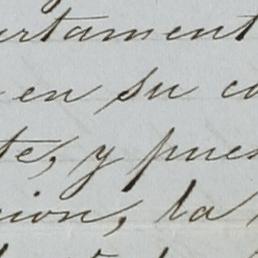 rtament
en su co
te, y pues
cion, la